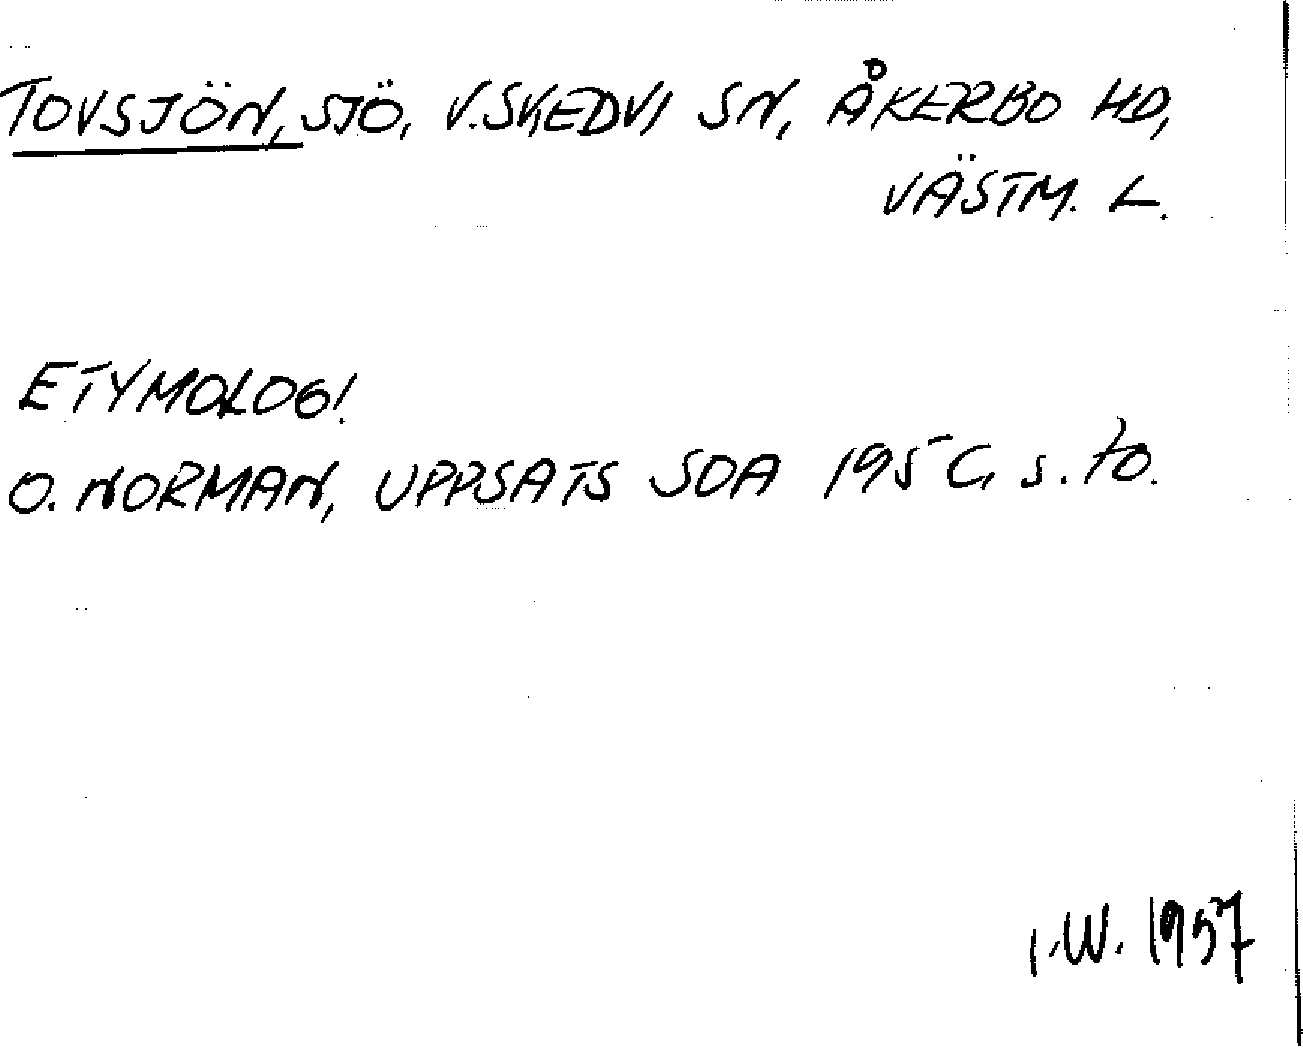 TOVSJÖN, SJÖ, V. SKEDVI SN, ÅKERBO HD,
VÄSTM. L.
ETYMOLOGI.
O. NORMAN, UPPSATS SOA 1950, s. 70.
I. W. 1957